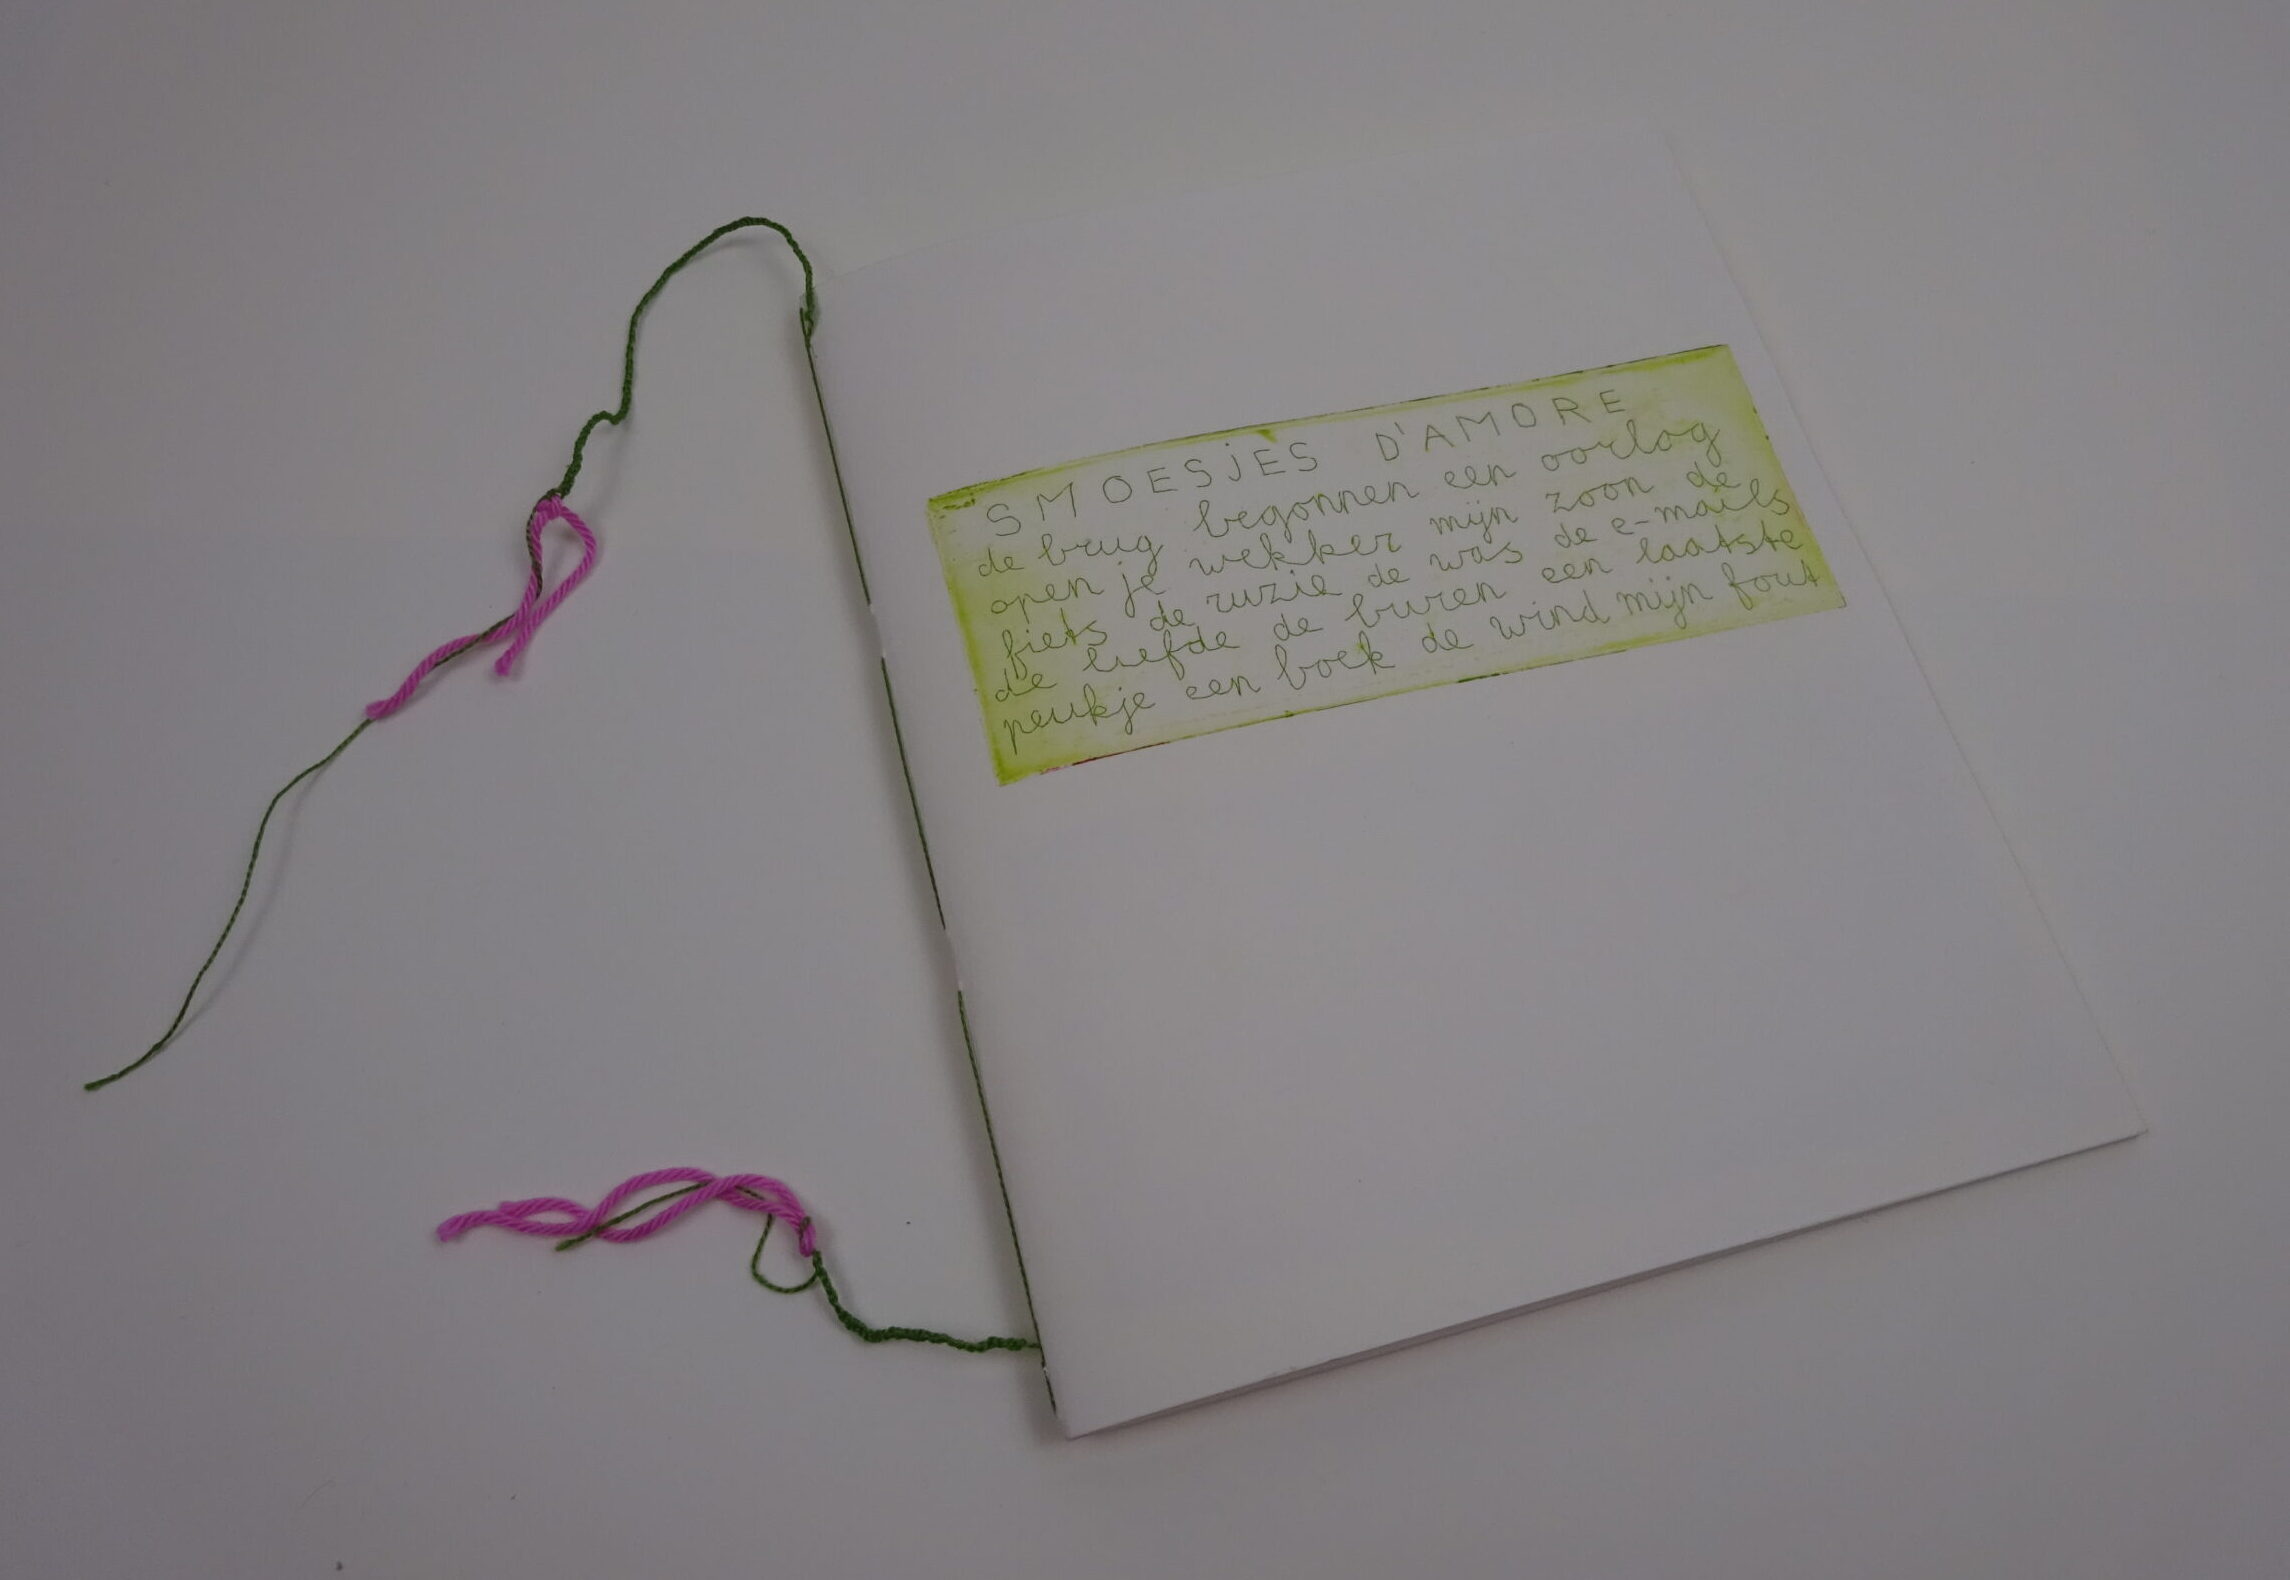 SMOESJES D'AMORE
de brug begonnen een oorlog
open je wekker mijn zoon de
fiets de ruzie de was de e-mails
de liefde de buren een laatste
peukje een boek de wind mijn fout